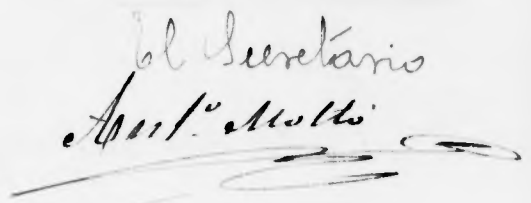 El Secretário
Ant.º Moltó